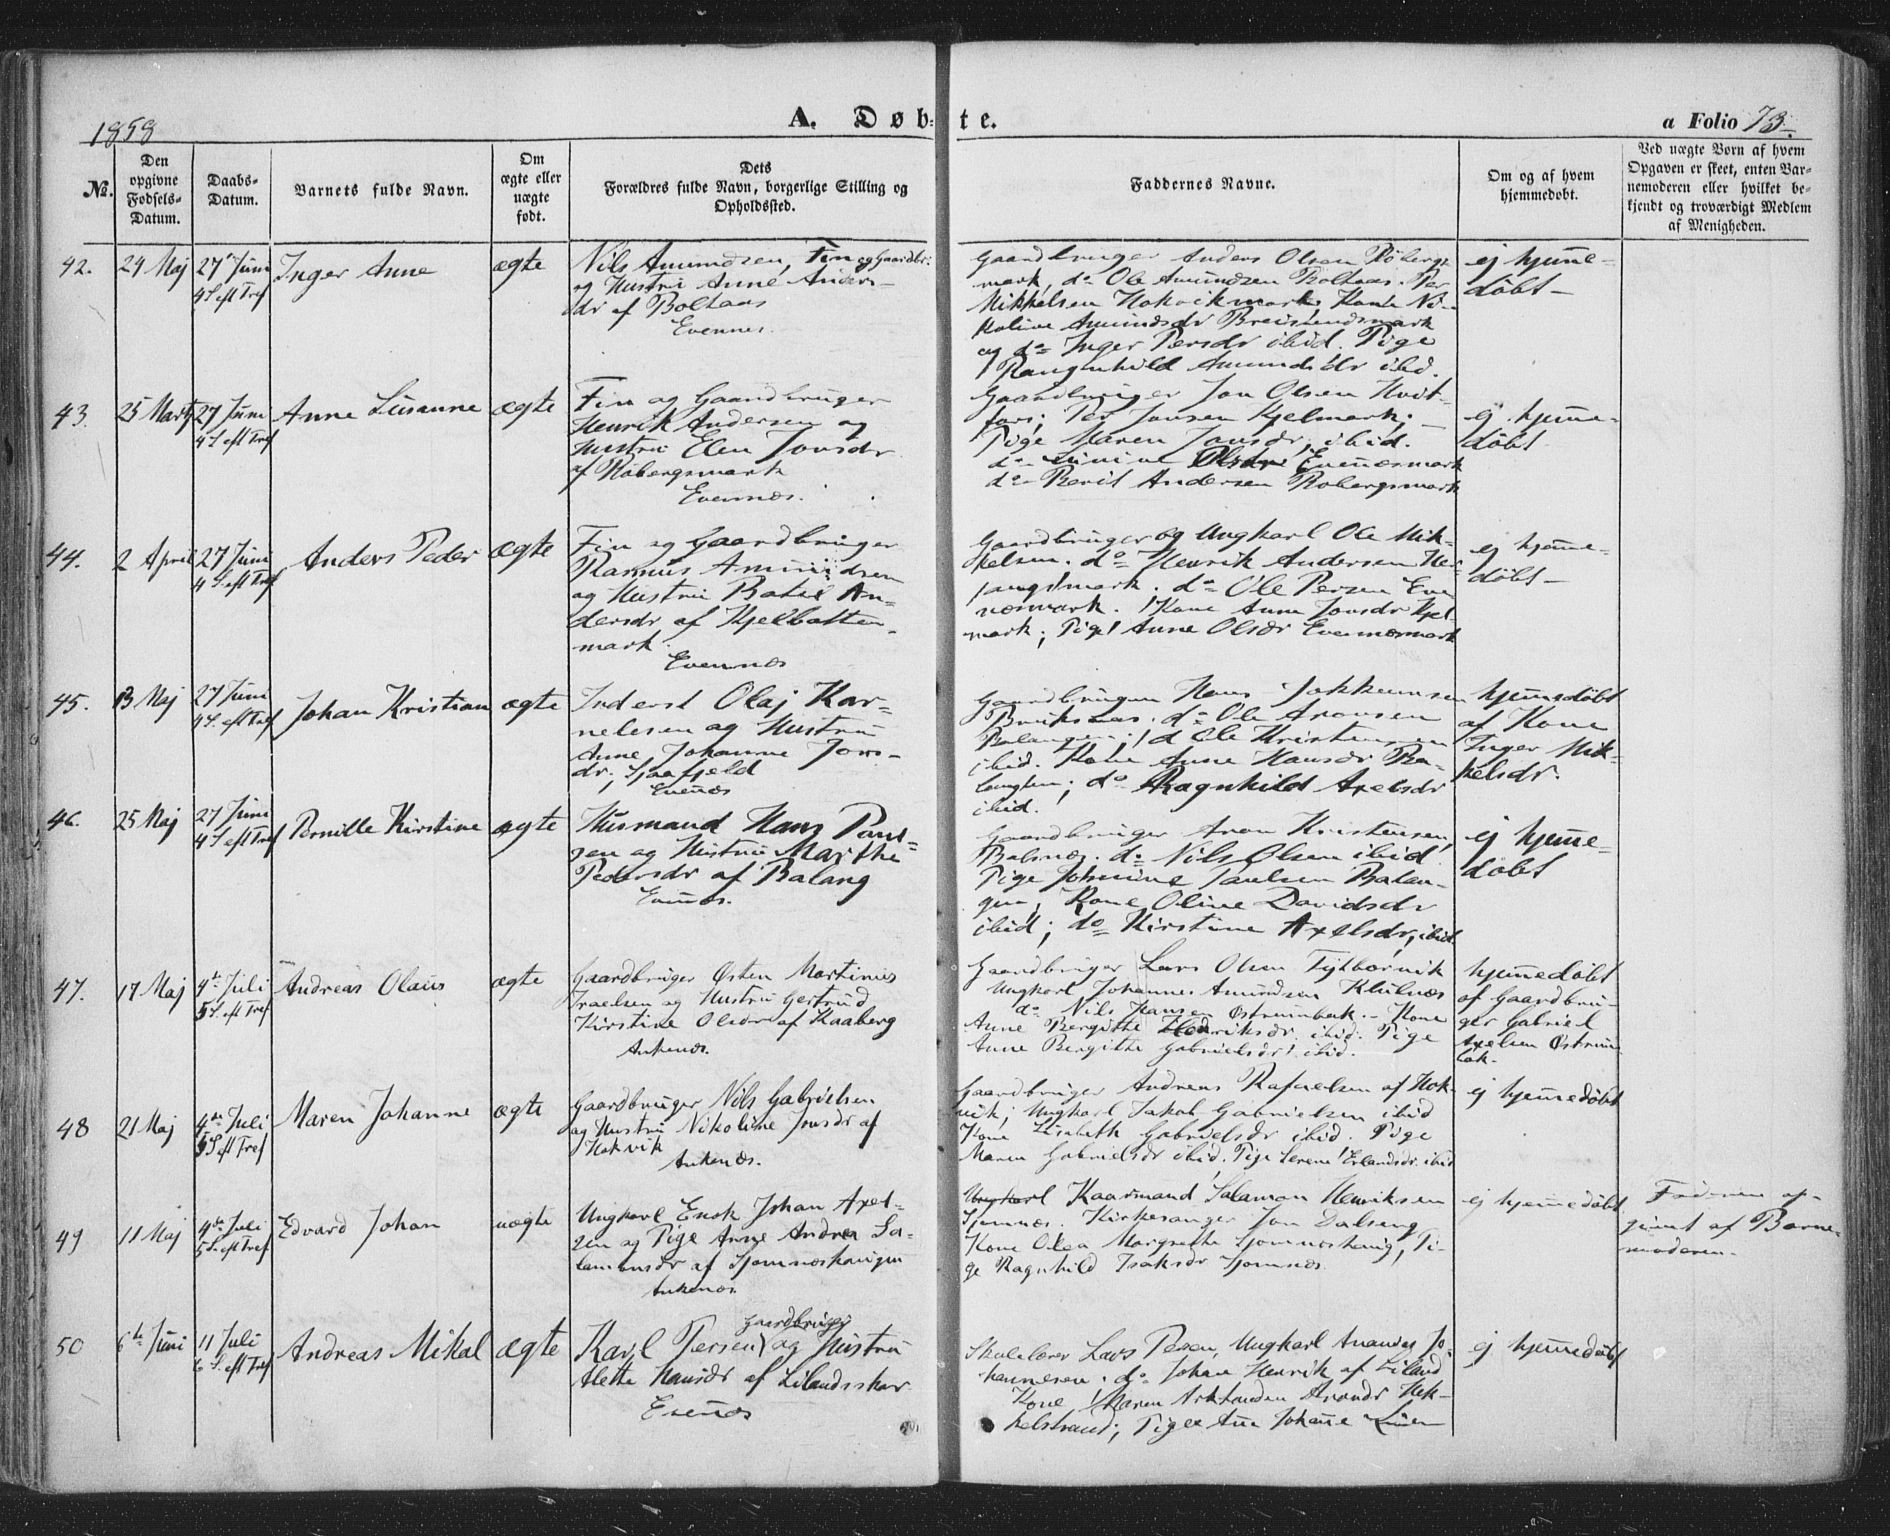 1858
A. Døbte.
a Folio 73.
No.
Den opgivne Fødsels-Datum.
Daabs-Datum.
Barnets fulde Navn.
Om ægte eller uægte født.
Dets Forældres fulde Navn, borgerlige Stilling og Opholdssted.
Faddernes Navne.
Om og af hvem hjemmedøbt.
Ved uægte Børn af hvem Opgaven er skeet, enten Barnemoderen eller hvilket bekjendt og troværdigt Medlem af Menigheden.
42. 24 Maj 27 Juni Inger Anne ægte
4 S. eft Tref
Nils Amundsen, Fin og Gaardbr.
og Hustru Anne Anders-
dr af Bolhaas
Evennes.
Gaardbruger Anders Olsen Røbergs
mark, do Ole Amundsen Bolhaas. Per
Mikkelsen Hokvikmark, Kone Ni-
koline Amundsdr Breistrandsmark
og do Inger Persdr ibid. Pige
Rangnhild Amundsdr ibid.
ej hjemme-
døbt
43. 25 Marts 27 Juni Anne Susanne ægte
4 S. eft Tref
Fin og Gaardbruger
Henrik Andersen og
Hustru Elen Jonsdr
af Røbergsmark
Evennes.
Gaardbruger Jon Olsen Kvit-
fors; Per Jonsen Kjelmark;
Pige Maren Jonsdr, ibid.
do Olsdr Evenæsmark
do Berit Andersen Robergsmark
ej hjemme-
døbt
44. 2 April 27 Juni Anders Peder ægte
4 S. eft Tref
Fin og Gaardbruger
Rasmus Amundsen
og Hustru An-
dersdr af Kjelbotten
mark.
Evennæs
Gaardbruger og Ungkarl Ole Mik-
kelsen. do Henrik Andersen Her-
jangsmark. do Ole Persen Even
næsmark. Kone Anne Jonsdr Kjel
mark; Pige Anne Olsdr Evennæsmark
ej hjemme-
døbt
45. 13 Maj 27 Juni Johan Kristian ægte
4 S. eft Tref
Inderst Olaj Kor-
nelesen og Hustru
Anne Johanne Jons-
dr,
Evenæs
Gaardbruger Hans
do Ole Aronsen
Balangen; do Ole Kristensen
ibid. Kone Anne Hansdr Ba-
langen; do Ragnhild Axelsdr
ibid.
hjemmedøbt
af Kone
Inger Mik-
kelsdr.
46. 25 Maj 27 Juni Pernille Kirstine ægte
4 S. eft Tref
Husmand Hans Paul-
sen og Hustru Marthe
Pedersdr af Balang
Evenæs.
Gaardbruger Aron Kristensen
Balsnes. do Nils Olsen ibid
Pige Paulsen Balan-
gen, Kone Oline Davidsdr
ibid; do Kirstine Axelsdr, ibid
ej hjemme-
døbt
47. 17 Maj 4de Juli Andreas Olaus ægte
5 S. eft Tref
Gaardbruger Østen Martinus
Iraelsen og Hustru Gertrud
Kirstine Olsdr af Kaaberg
Ankenæs.
Gaardbruger Lars Olsen
Ungkarl Johannes Amundsen
do Nils Hansen Østrumbak. Kone
Anne Bergitte Hendriksdr, ibid. Pige
Anne Bergitte Gabrielsdr, ibid.
hjemmedøbt
af Gaardbru-
ger Gabriel
Axelsen Østrum-
bak.
48 21 Maj 4de Juli Maren Johanne ægte
5 S. eft Tref
Gaardbruger Nils Gabrielsen
og Hustru Nikoline Jonsdr af
Hokvik
Ankenæs.
Gaardbruger Andreas Rafaelsen af Hok-
vik; Ungkarl Jakob Gabrielsen ibid
Kone Lisabeth Gabrielsdr ibid. Pige
Maren Gabrielsdr ibid. Pige Serene Erlandsdr. ibid
ej hjemmedøbt
49 11 Maj 4de Juli Edvard Johan uægte
5 S. eft Tref
Ungkarl Enok Johan Axel-
sen og Pige Anne Andrea Sa-
lamonsdr af
Ankenæs.
Ungkarl Kaarmand Salamon Henriksen
Kirkesanger Jon Dalseng,
Kone Olea Margrethe Pi-
ge Ragnhild Isaksdr
ej hjemmedøbt
Faderen op-
givet af Barne-
moderen.
50 6te Juni 11 Juli Andreas Mikal ægte
6 S. eft Tref
Gaardbruger
Karl Persen og Hustru
Alette Hansdr af Lilandsskar
Evenæs
Skolelærer Lars Persen, Ungkarl Ananias Jo-
hannesen. do Johan Henrik af Liland
Kone Maren
ej hjemmedøbt